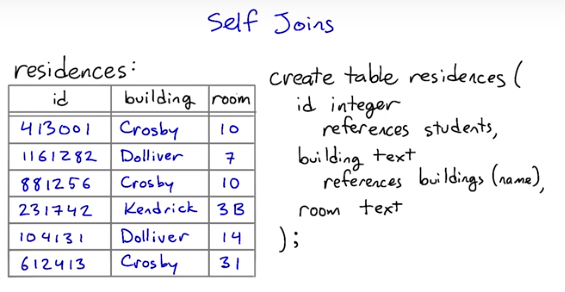 Self Joins
residences:
id building room
413001 Crosby 10
1161282 Dolliver 7
881256 Crosby 10
231742 Kendrick 3B
104131 Dolliver 14
612413 Crosby 31
create table residences (
id integer
references students,
building text
references buildings (name),
room text
);